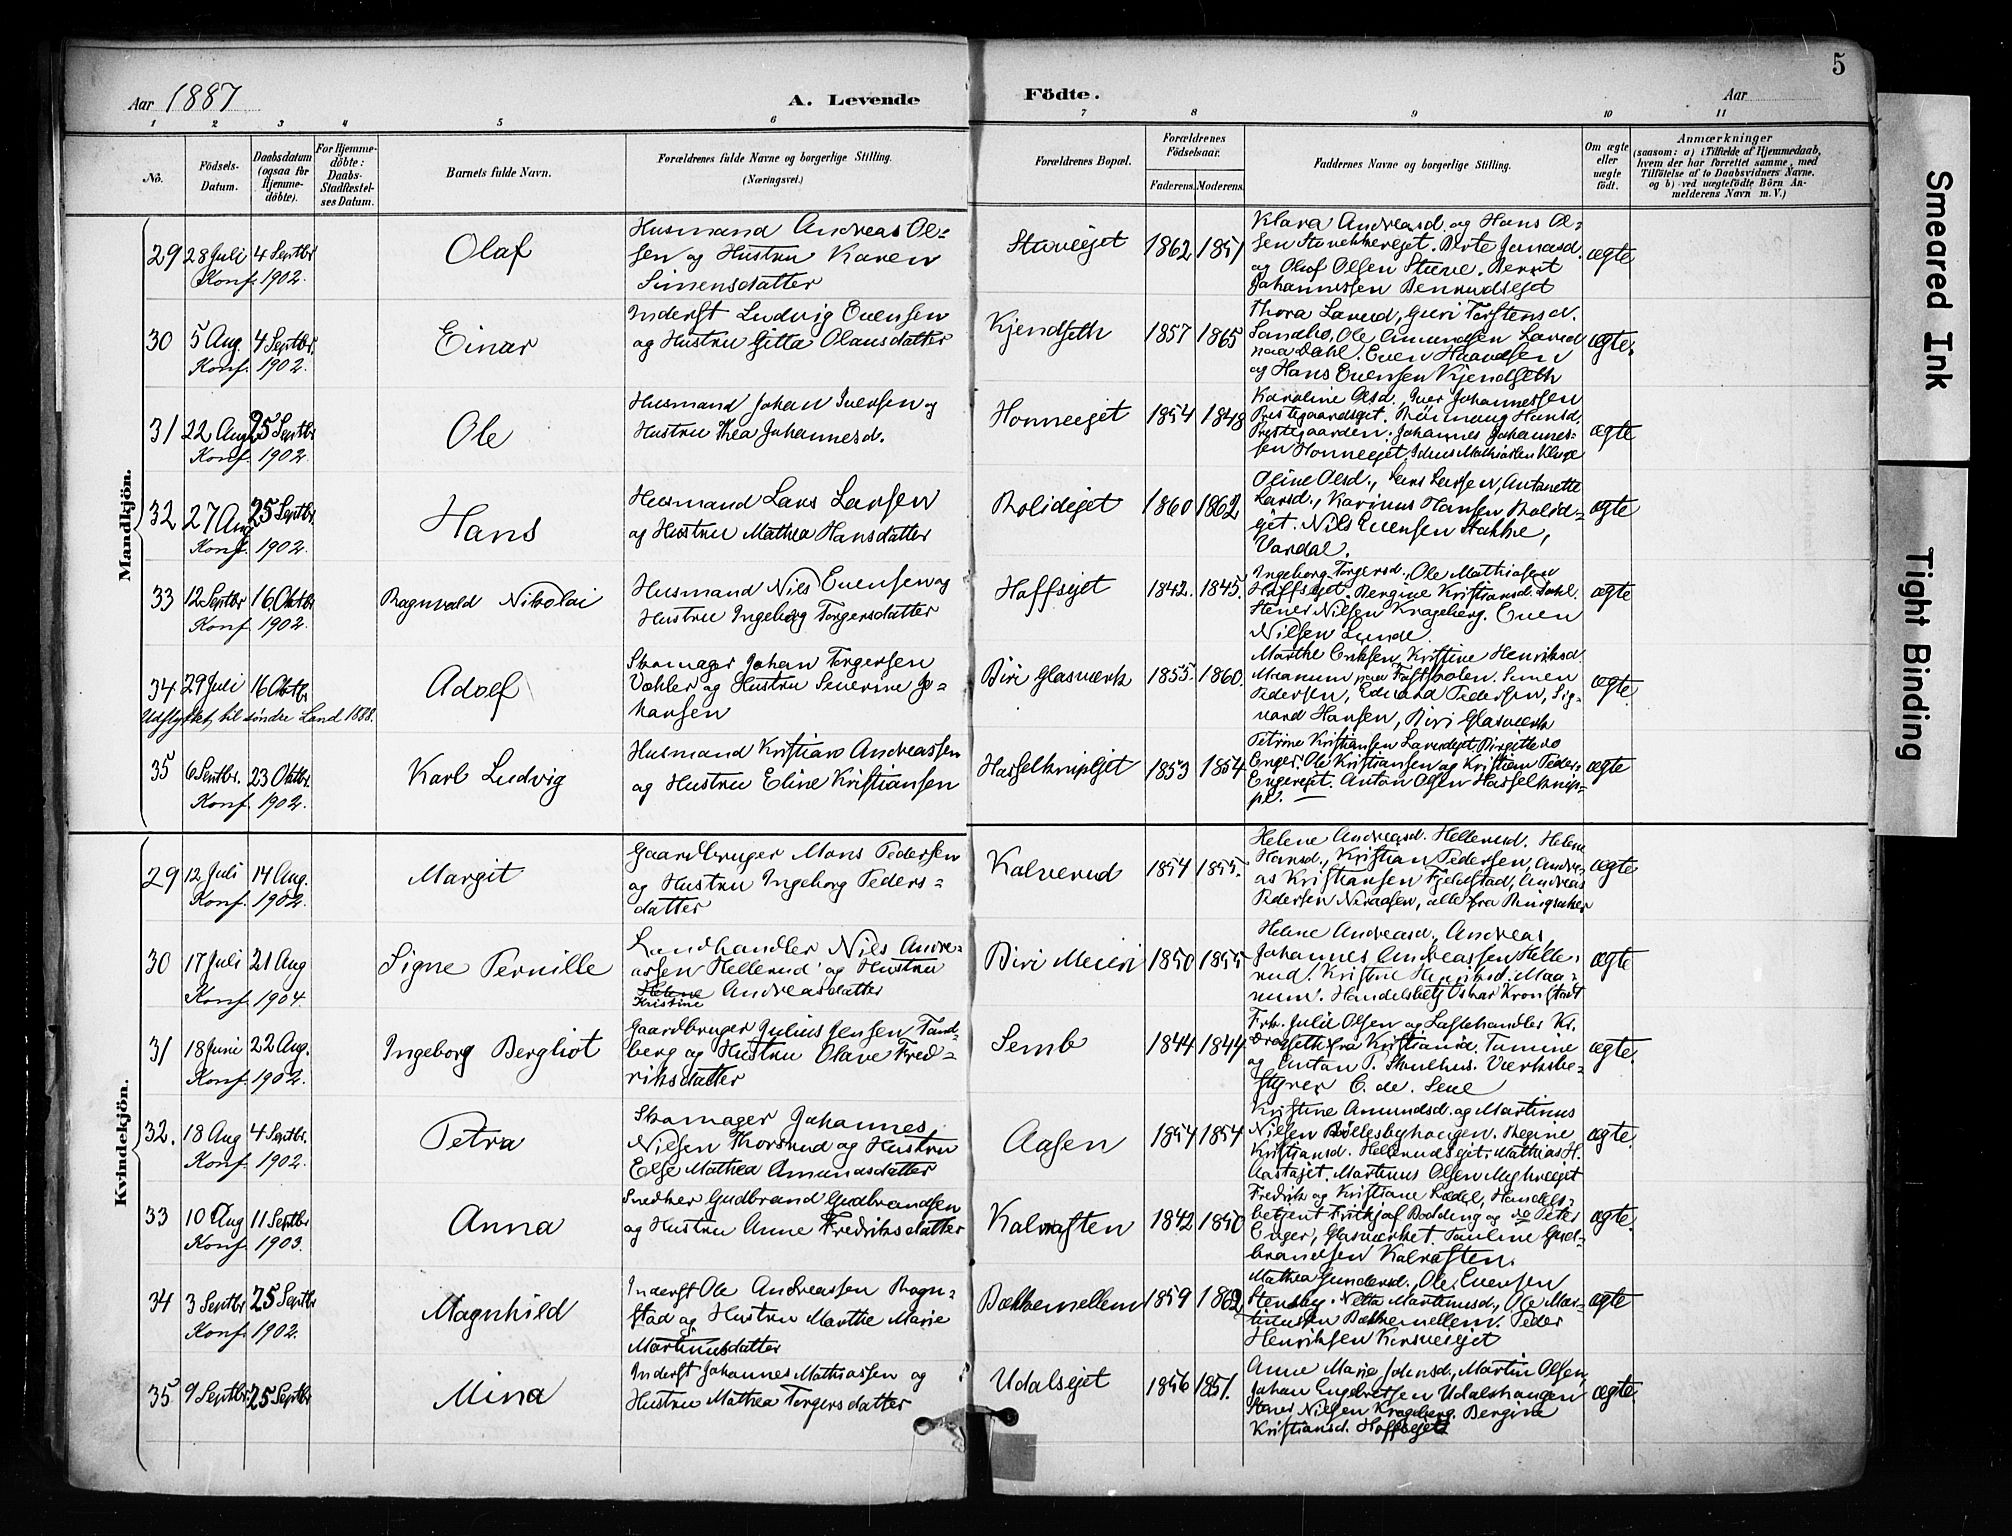 5
Aar 1887
A. Levende
Födte.
Aar
1 2 3 4 5 6 7 8 9 10 11
No.
Födsels-Datum.
Daabsdatum (ogsaa for Hjemme-döbte).
For Hjemme-döbte: Daabs-Stadfæstel-ses Datum.
Barnets fulde Navn.
Forældrenes fulde Navne og borgerlige Stilling.
(Næringsvei.)
Forældrenes Bopæl.
Forældrenes Födselsaar.
Faderens. Moderens.
Faddernes Navne og borgerlige Stilling.
Om ægte eller uægte födt.
Anmærkninger
(saasom: a) i Tilfælde af Hjemmedaab,
hvem der har forrettet samme, med
Tilföielse af to Daabsvidners Navne.
og b) ved uægtefödte Börn An-
melderens Navn m. V.)
Mandkjön.
29 28 Juli 4 Septbr Konf. 1902. Olaf
Husmand Andreas Ol-
sen og Hustru Karen
Simensdatter
1862 1851
Klara Andreasd. og Hans Ol-
og Oluf Olsen Stuve. Bernt
Johannessen Benrudseget
ægte
30 5 Aug. 4 Septbr. Konf. 1902. Einar
Inderst Ludvig Evensen
og Hustru Gitta Olausdatter
Kjendseth 1857 1865
Thora Laved, Guri Torstensd.
Sandbo, Ole Amundsen Laved
paa Dahl. Even Haandsen
og Hans Evensen Kjendseth
ægte.
31 22 Aug 25 Septbr Konf. 1902. Ole
Husmand Johan Iversen og
Hustru Thea Johannesd.
Honneejet 1854 1848
Karoline Olsd., Iver Johannessen
Prestegaardseget. Hansd.
Prestegaarden. Johannes Johannes-
sen Honneejet. Mathiasen
ægte
32 27 Aug 25 Septbr. Konf. 1902. Hans
Husmand Lars Larsen
og Hustru Mathea Hansdatter
1860 1862
Oline Olsd., Lars Larsen, Antonette
Larsd., Karinus Hansen
Nils Evensen Stakke,
Vardal.
ægte
33 12 Septbr 16 Oktbr Konf. 1902. Ragnvald Nikolai
Husmand Nils Evensen og
Hustru Ingeborg Torgersdatter
Hoffsejet 1842. 1845.
Ingeborg Torgersd., Ole Mathiasen
Hoffsejet. Bergine Kristiansd. Dahl.
Stener Nilsen Krageberg. Even
Nilsen Lunde
ægte
34 29 Juli 16 Oktbr. Adolf
Udflyttet til söndre Land 1888.
Skomager Johan Torgersen
Væhler og Hustru Severine Jo-
hansen
Biri Glasværk 1855. 1860.
Marthe Eriksen, Kristine Henriksd.
Maanum paa Fastholen. Simen
Pedersen, Edvard Pedersen, Sig-
vard Hansen, Biri Glasværk
ægte.
35 6 Septbr. 23 Oktbr. Konf. 1902. Karl Ludvig
Husmand Kristian Andreassen
og Hustru Eline Kristiansen
1853 1854
Petrine Kristiansen Birgitte do
Enger. Ole Kristiansen og Kristian Peder-
Engereget. Anton Olsen Hasselknip-
pe. —
ægte
Kvindekjön.
29 12 Juli 14 Aug. Konf. 1902. Margit
Gaardbruger Mons Pedersen
og Hustru Ingeborg Peders-
datter
Kalverud 1854 1855.
Helene Andreasd. Hellerud. Helene
Hansd., Kristian Pedersen, Andre-
as Kristiansen Fjeldstad, Andreas
Pedersen alle fra Ringsaker
ægte
30 17 Juli 21 Aug Konf. 1904. Signe Pernille
Landhandler Nils Andre-
assen Hellerud og Hustru
Helene
Kristine Andreasdatter
Biri Meieri 1850 1855
Helene Andreasd, Andreas,
Johannes Andreassen Helle-
rud. Kristine Henriksd. Maa-
num. Handelsbetj Oskar Kronstadt
ægte
31 18 Juni 22 Aug. Konf. 1902. Ingeborg Bergliot
Gaardbruger Julius Jensen Tand-
berg og Hustru Olave Fred-
riksdatter
Semb 1844 1844
Frk. Julie Olsen og Kr.
fra Kristiania. Tamine
og Anton P. Skulhus. Værksbe-
styrer C. de. Seue
ægte.
32. 18 Aug 4 Septbr. Konf. 1902. Petra
Skomager Johannes
Nilsen Thorsrud og Hustru
Else Mathea Amundsdatter
Aasen 1854 1854
Kristine Amundsd. og Martinus
Nilsen Böllesbyhaugen. Regine
Kristiansd. Hellerudsejet. Mathias H.
Martinus Olsen
ægte.
33 10 Aug 11 Septbr Konf. 1903. Anna
Snedker Gudbrand Gudbrandsen
og Hustru Anne Fredriksdatter
Kalvaften 1842 1850
Fredrik og Kristiane Rödel, Handels-
betjent Fritkjof Bodding og do Peter
Enger, Glasværket. Pauline Gud-
brandsen Kalvaften.
ægte.
34 3 Septbr 25 Septbr Konf. 1902. Magnhild
Inderst Ole Andreassen Rogn-
stad og Hustru Marthe Marie
Martinusdatter
Bækkemellem 1859 1862
Mathea Gundersd., Ole Evensen
Stensby. Netta Martinusd., Ole Mar-
tinusen Bækkemellem. Peder
Henriksen
ægte
35 9 Septbr 25 Septbr Mina
Inderst Johannes Mathiassen og
Hustru Mathea Torgersdatter
Udalsejet 1856 1851.
Anne Marie Johnsd., Martin Olsen,
Johan Engebretsen Udalshaugen
Stener Nilsen Krageberg. Bergine
Kristiansd. Hoffsejet
ægte.
Smeared Ink
Tight Binding